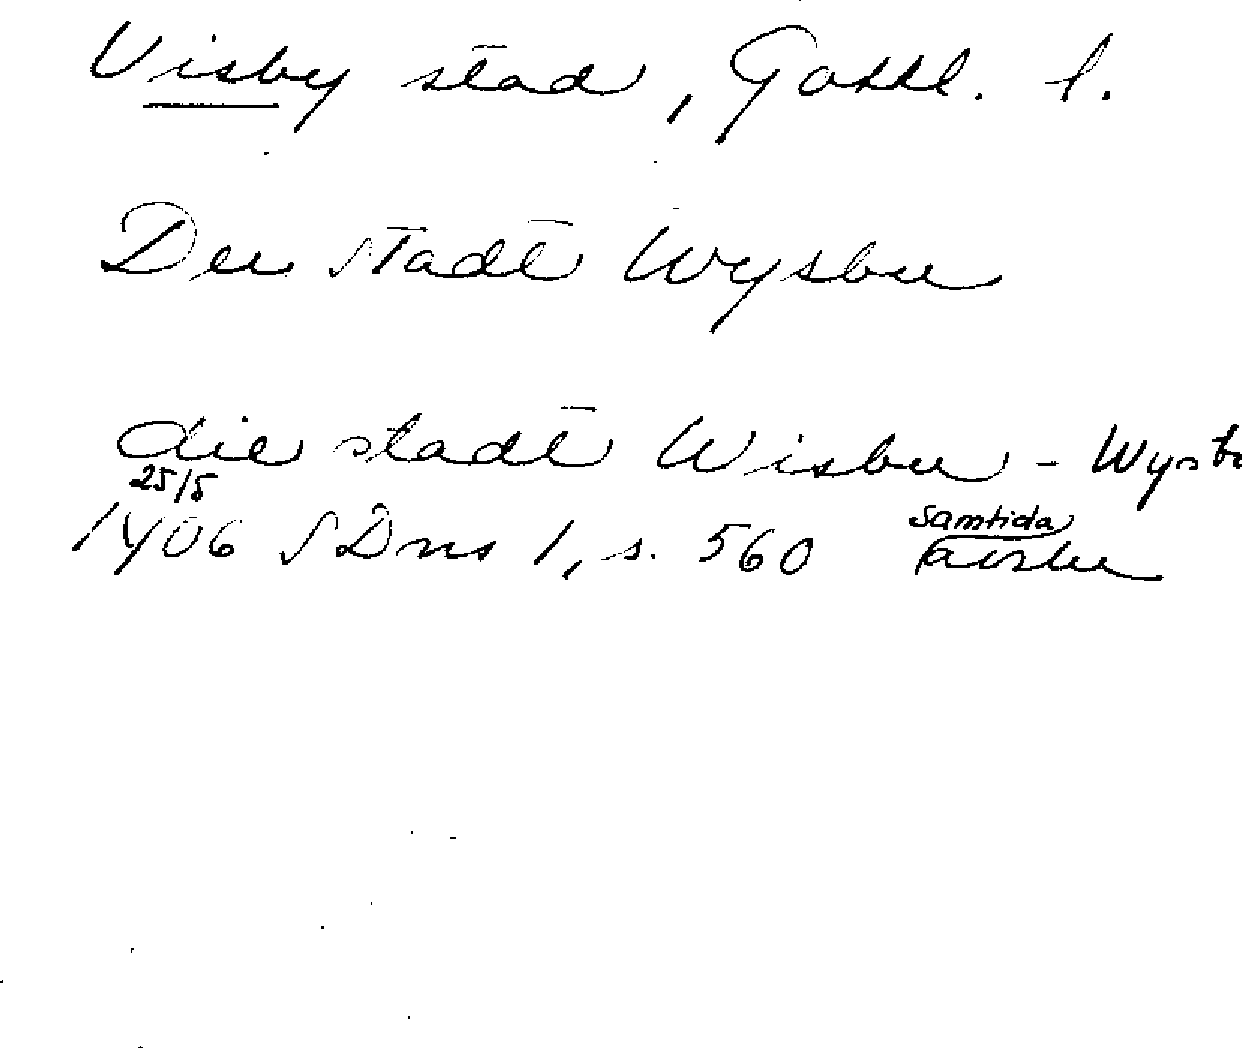 Visby stad, Gottl. l.
Der stadt Wysbu
die stadt Wisbu - Wysb
25/5
1406 SDns 1, s. 560
samtida
avskr